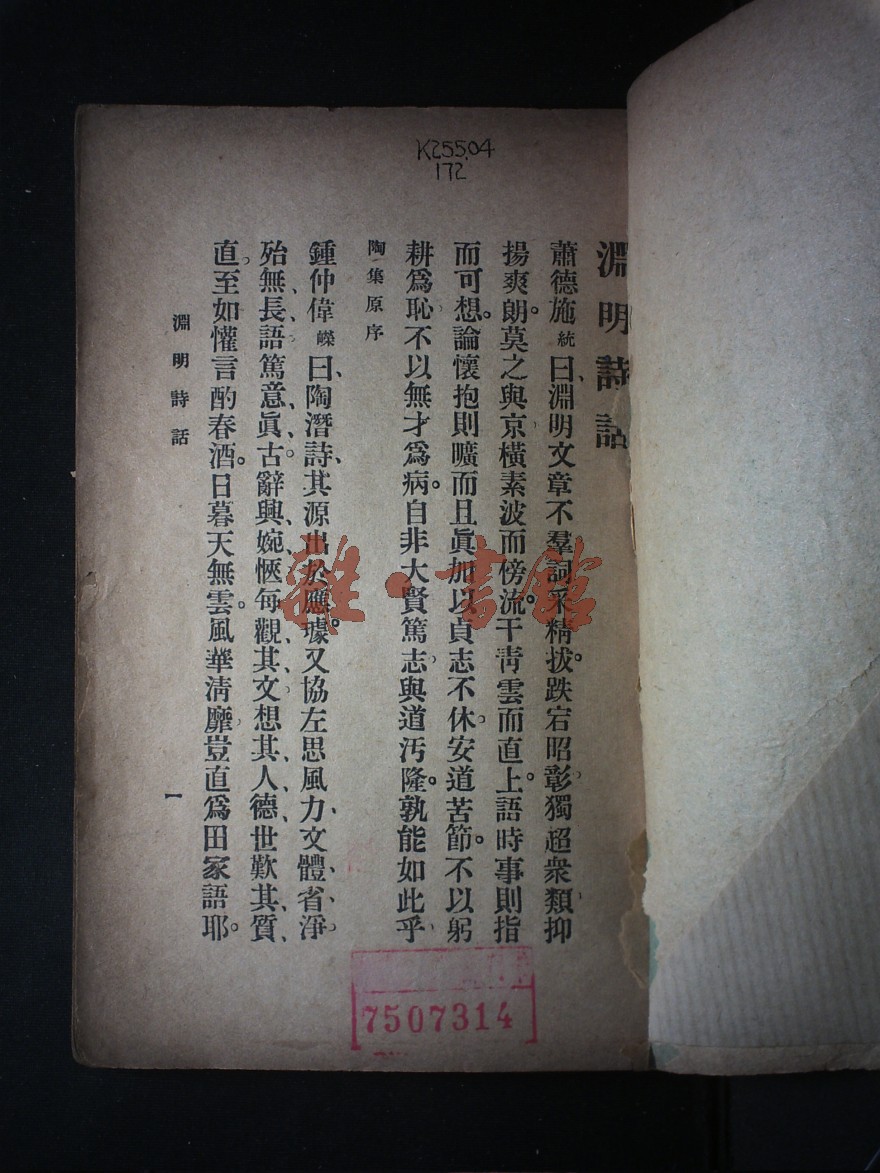 K255.04
172
淵明詩話
蕭德施統曰、淵明文章不羣詞采精拔。跌宕昭彰、獨超衆類、抑
揚爽朗。莫之與京、橫素波而傍流。干青雲而直上。語時事則指
而可想。論懷抱則曠而且眞。加以貞志不休。安道苦節。不以躬
耕爲恥、不以無才爲病。自非大賢篤志、與道汚隆。孰能如此乎、
陶集原序
鍾仲偉嶸曰、陶潛詩、其源出於應璩。又協左思風力、文體省淨、
殆無長語、篤意眞古。辭興婉愜、每觀其文、想其人德、世歎其質
直、至如懽言酌春酒。日暮天無雲。風華淸靡、豈直爲田家語耶。
淵明詩話
一
雜·書館
7507314